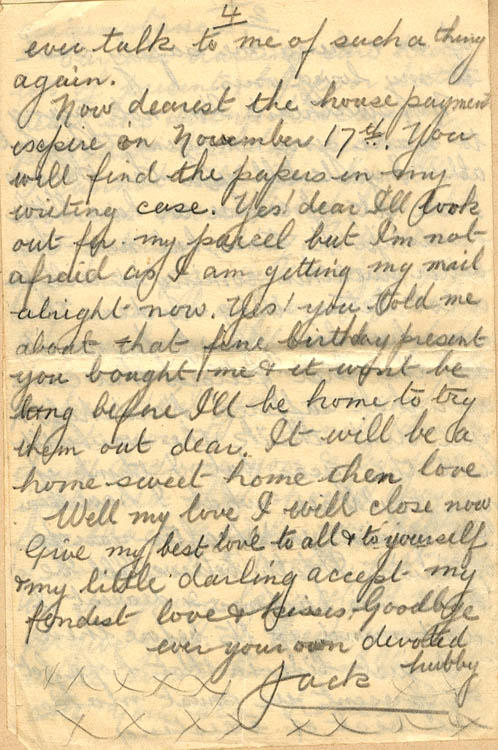 4
ever talk to me of such a thing
again.
Now dearest the house payment
expire on November 17th. You
will find the papers in my
writing case. Yes! dear I'll look
out for my parcel but I'm not
afraid as I am getting my mail
alright now. Yes! you told me
about that fine birthday present
you bought me & it won't be
long before I'll be home to try
them out dear. It will be a
home sweet home then love
Well my love I will close now
Give my best love to all & to yourself
& my little darling accept my
fondest love & kisses. Goodbye
ever your own devoted
hubby
Jack
x x x x x x x x x x
x x x x x x x x x